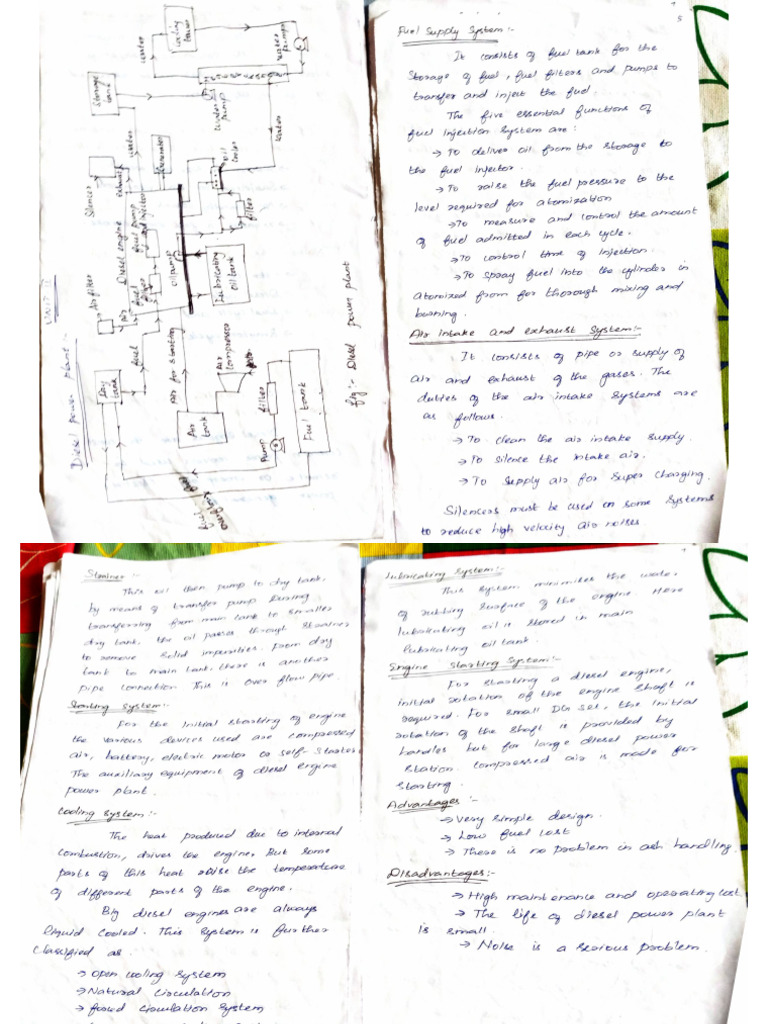 UNIT II
Diesel power plant :-
Day
tank
Air filter
Silencer
Storage
tank
water
cooling
tower
water
water
pumps
fuel
Air
Diesel engine
fuel
filter
fuel pump
and injector
exhaust
Generator
water
water
pumps
oil
cooler
water
oil pump
filter
Air for starting
lubricating
oil tank
Air
tank
Air
compressor
Air
pump
filter
Fuel tank
fig:- Diesel power plant
Fuel Supply System :-
It consists of fuel tank for the
storage of fuel, fuel filters and pumps to
transfer and inject the fuel.
The five essential functions of
fuel injection system are :
→ To deliver oil from the storage to
the fuel injector.
→ To raise the fuel pressure to the
level required for atomization
→ To measure and control the amount
of fuel admitted in each cycle.
→ To control time of injection.
→ To spray fuel into the cylinder in
atomized from for thorough mixing and
burning.
Air intake and exhaust System:-
It consists of pipe or supply of
air and exhaust of the gases. The
duties of the air intake systems are
as follows.
→ To clean the air intake supply.
→ To silence the intake air.
→ To supply air for super charging.
Silencers must be used on some systems
to reduce high velocity air noises
Strainer :-
This oil then pump to dry tank,
by means of transfer pump During
transferring from main tank to smaller
dry tank. the oil passes through strainer
to remove solid impurities. From dry
tank to main tank. there is another
pipe connection. This is over flow pipe.
Starting system:-
For the initial starting of engine
the various devices used are compressed
air, battery, electric motor or self-starter
The auxiliary equipment of diesel engine
power plant.
Cooling system :-
The heat produced due to internal
combustion, drives the engine. But some
parts of this heat raise the temperature
of different parts of the engine.
Big diesel engines are always
liquid cooled. This system is further
classified as.
→ open cooling system
→ Natural circulation
→ forced circulation system
Lubricating system:-
This system minimises the water
of rubbing surface of the engine. Here
lubricating oil is stored in main
lubricating oil tank.
Engine starting System:-
For starting a diesel engine,
initial rotation of the engine shaft is
required. For small DG set, the initial
rotation of the shaft is provided by
handles but for large diesel power
station. compressed air is made for
starting.
Advantages :-
→ very simple design.
→ Low fuel cost
→ There is no problem in ash handling.
Disadvantages:-
→ High maintenance and operating cost
→ The life of diesel power plant
is small.
→ Noise is a serious problem.